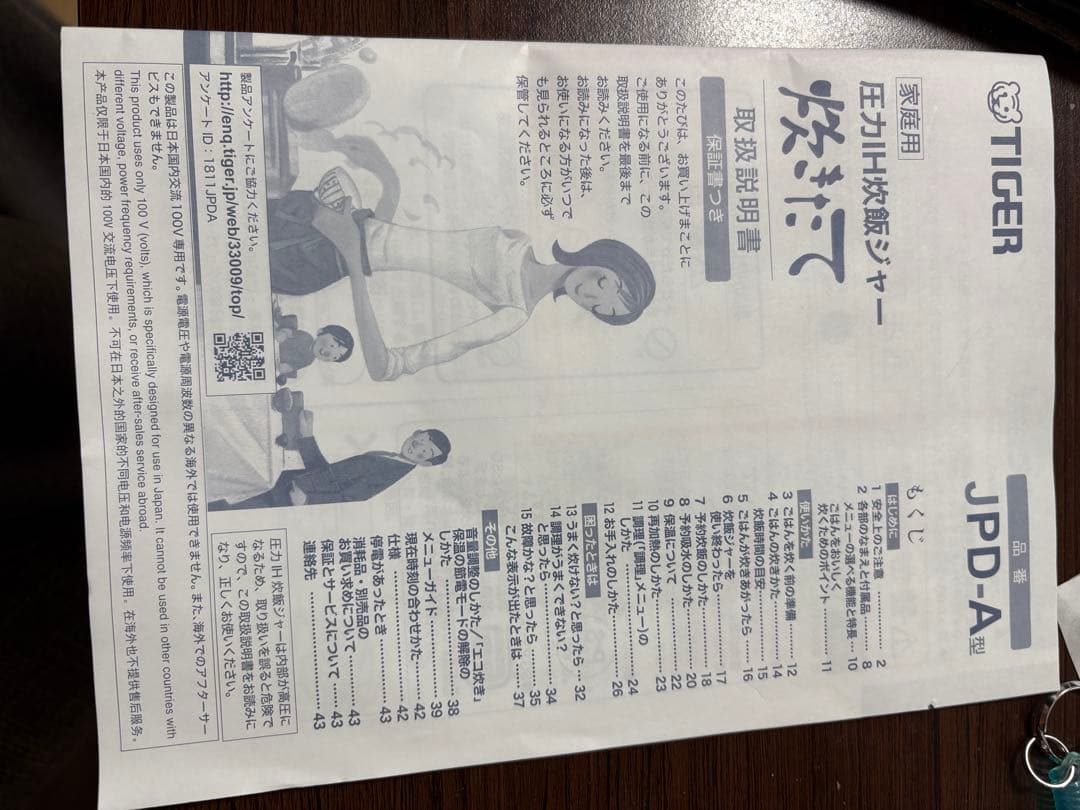 TIGER
家庭用
圧力IH炊飯ジャー
炊きたて
取扱説明書
保証書つき
このたびは、お買い上げまことに
ありがとうございます。
ご使用になる前に、この
取扱説明書を最後まで
お読みください。
お読みになった後は、
お使いになる方がいつで
も見られるところに必ず
保管してください。
品番
JPD-A型
もくじ
はじめに
1 安全上のご注意 ……… 2
2 各部のなまえと付属品 8
メニューの選べる機能と特長… 10
ごはんをおいしく
炊くためのポイント……… 11
使いかた
3 ごはんを炊く前の準備 …… 12
4 ごはんの炊きかた ……… 14
炊飯時間の目安……… 15
5 ごはんが炊きあがったら …… 16
6 炊飯ジャーを
使い終わったら……… 17
7 予約炊飯のしかた……… 18
8 予約吸水のしかた……… 20
9 保温について……… 22
10 再加熱のしかた……… 23
11 調理(「調理」メニュー)の
しかた……… 24
12 お手入れのしかた……… 26
困ったときは
13 うまく炊けない?と思ったら… 32
14 調理がうまくできない?
と思ったら……… 34
15 故障かな?と思ったら …… 35
こんな表示が出たときは …… 37
その他
音量調整のしかた/「エコ炊き」
保温の節電モードの解除の
しかた……… 38
メニューガイド……… 39
現在時刻の合わせかた……… 42
仕様……… 42
停電があったとき……… 43
消耗品・別売品の
お買い求めについて……… 43
保証とサービスについて…… 43
連絡先……… 43
圧力IH炊飯ジャーは内部が高圧に
なるため、取り扱いを誤ると危険で
すので、この取扱説明書をお読みに
なり、正しくお使いください。
製品アンケートにご協力ください。
http://enq.tiger.jp/web/33009/top/
アンケートID:1811JPDA
この製品は日本国内交流100V専用です。電源電圧や電源周波数の異なる海外では使用できません。また、海外でのアフターサー
ビスもできません。
This product uses only 100 V (volts), which is specifically designed for use in Japan. It cannot be used in other countries with
different voltage, power frequency requirements, or receive after-sales service abroad.
本产品仅限于日本国内的100V交流电压下使用。不可在日本之外的国家的不同电压和电源频率下使用。在海外也不提供售后服务。